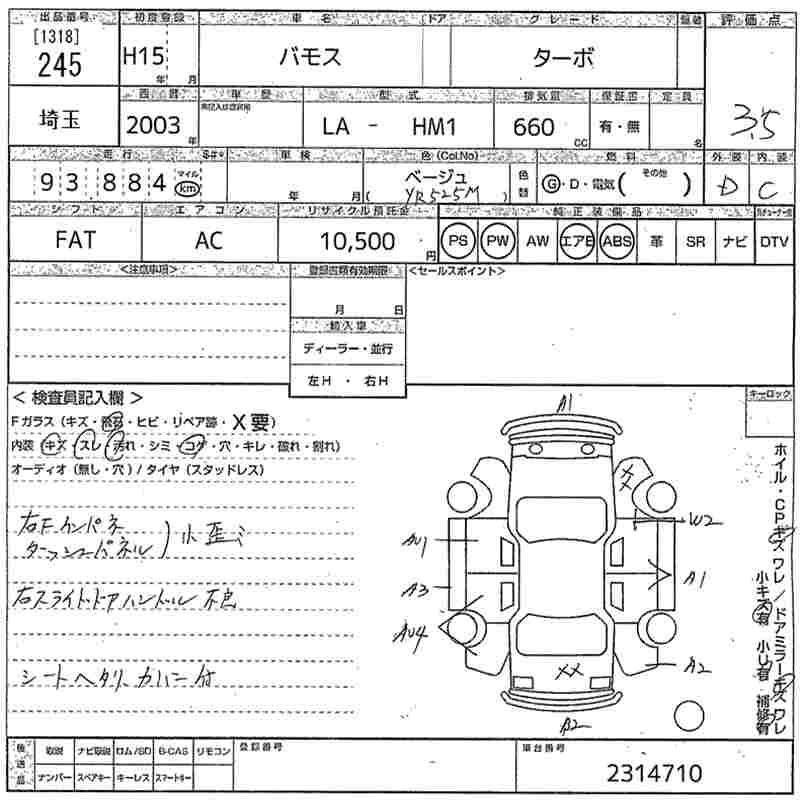 出品番号 初度登録 車名 ドア グレード 評価点
[1318]
245 H15 年 月 バモス ターボ 3.5
埼玉
西暦 車歴 型式 排気量 保証書 定員
2003 年 LA - HM1 660 cc 有・無 名
走行 車検 色(Col.No) 燃料 外装 内装
93,884 マイル km 年 月 ベージュ 色替 G・D・電気( その他 ) D C
( YR525M )
シフト エアコン リサイクル預託金 純正装備品
FAT AC 10,500 円 PS PW AW エアB ABS 革 SR ナビ DTV
<注意事項> 登録書類有効期限 <セールスポイント>
月 日
輸入車
ディーラー・並行
左H ・ 右H
< 検査員記入欄 > キーロック
Fガラス (キズ・飛石・ヒビ・リペア跡・X要)
内装 (キズ・スレ・汚れ・シミ・コゲ・穴・キレ・破れ・割れ)
オーディオ (無し・穴) / タイヤ (スタッドレス)
右Fカンパネ
ダッシュパネル ) 小歪ミ
右スライドドアハンドル不良
シートヘタリ、カバー付
A1
XX
W2
AU1
A3
A1
AU4
A2
XX
A2
ホイル・CPキズ ワレ / ドアミラーキズ ワレ
小キズ有 小凹有 補修有
後送品 取説 ナビ取説 ロム/SD B-CAS リモコン 登録番号 車台番号
ナンバー スペアキー キーレス スマートキー 2314710